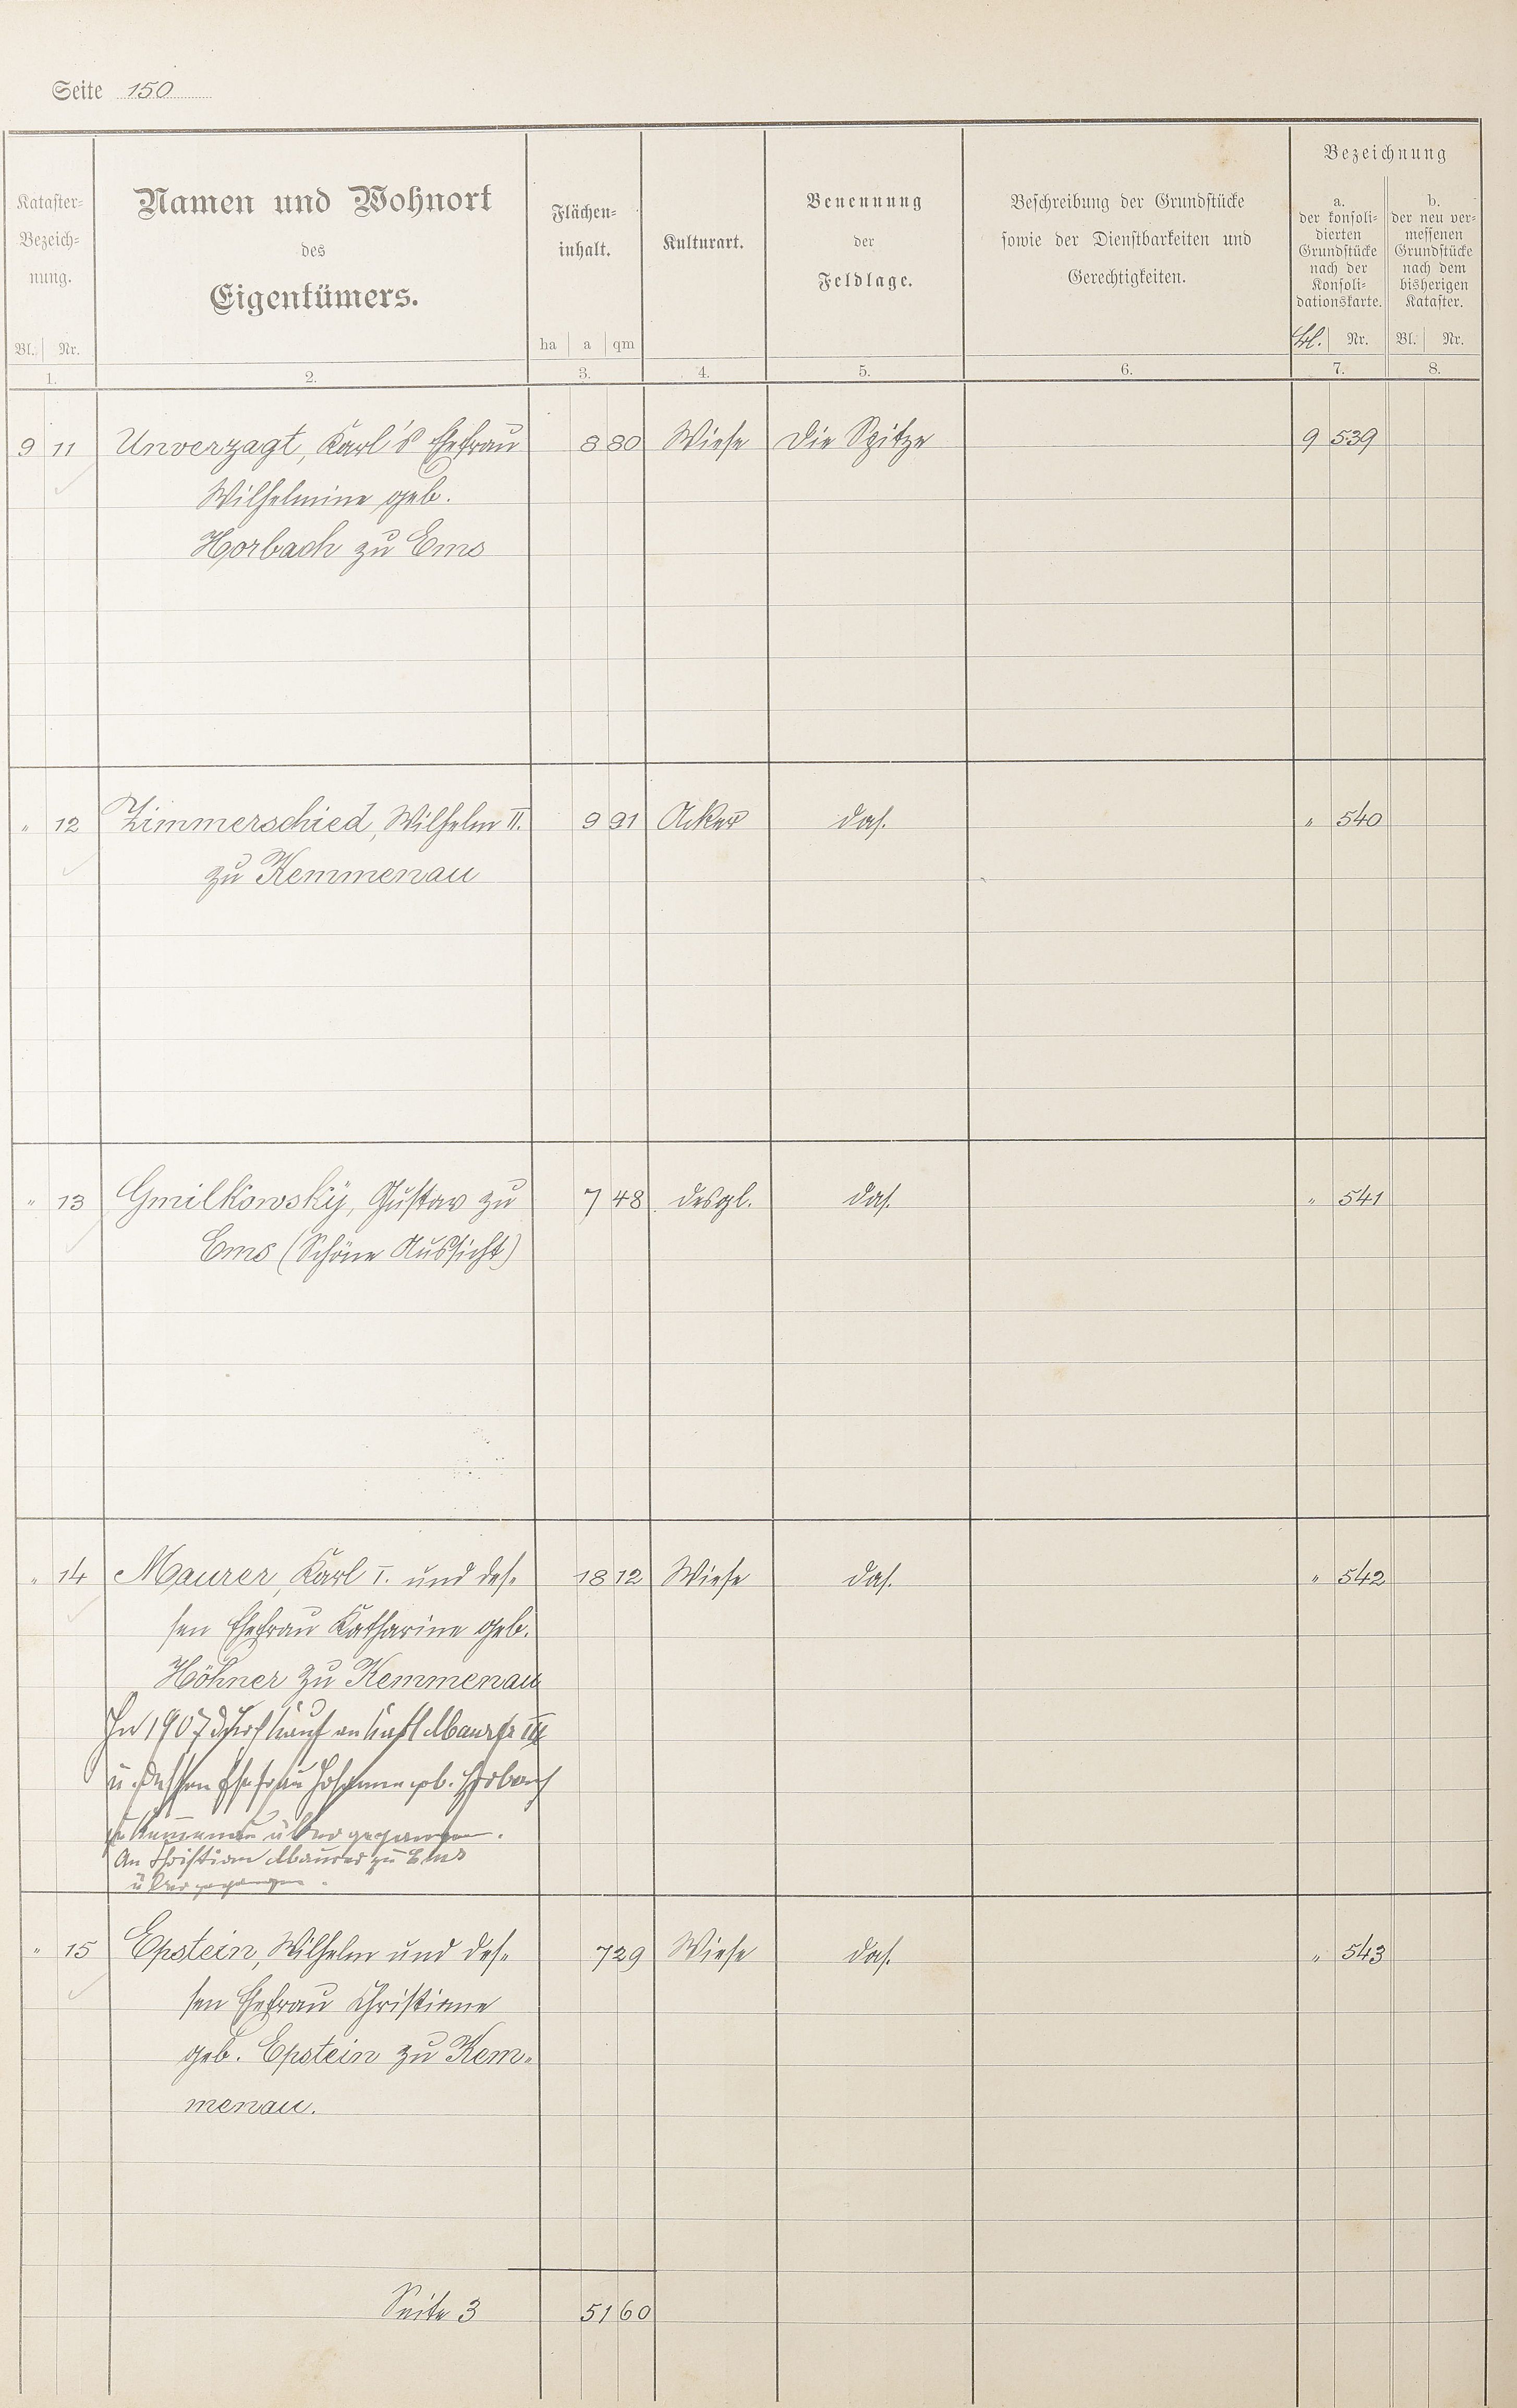 Seite 150
Kataster-
Bezeich-
nung.
Bl. Nr.
1.
Namen und Wohnort
des
Eigentümers.
2.
Flächen-
inhalt.
ha a qm
3.
Kulturart.
4.
Benennung
der
Feldlage.
5.
Beschreibung der Grundstücke
sowie der Dienstbarkeiten und
Gerechtigkeiten.
6.
Bezeichnung
a.
der konsoli-
dierten
Grundstücke
nach der
Konsoli-
dationskarte.
Nr.
7.
b.
der neu ver-
messenen
Grundstücke
nach dem
bisherigen
Kataster.
Bl. Nr.
8.
9 11 Unverzagt, Karl's Ehefrau 8 80 Wiese Die Spitze 9 539
Wilhelmine geb.
Horbach zu Ems
" 12 Zimmerschied, Wilhelm II. 9 91 Acker das. " 540
zu Kemmenau
" 13 Gmilkowsky, Gustav zu 7 48 desgl. das. " 541
Ems (Schöne Aussicht)
" 14 Maurer, Karl I. und des- 18 12 Wiese das. " 542
sen Ehefrau Katharine geb.
Höhner zu Kemmenau
In 1907 durch Kauf an Karl Maurer III
u. dessen Ehefrau geb.
zu Kemmenau übergegangen.
An Christian Maurer zu Ems
übergegangen.
" 15 Epstein, Wilhelm und des- 7 29 Wiese das. " 543
sen Ehefrau Christiane
geb. Epstein zu Kem-
menau.
Seite 3 51 60